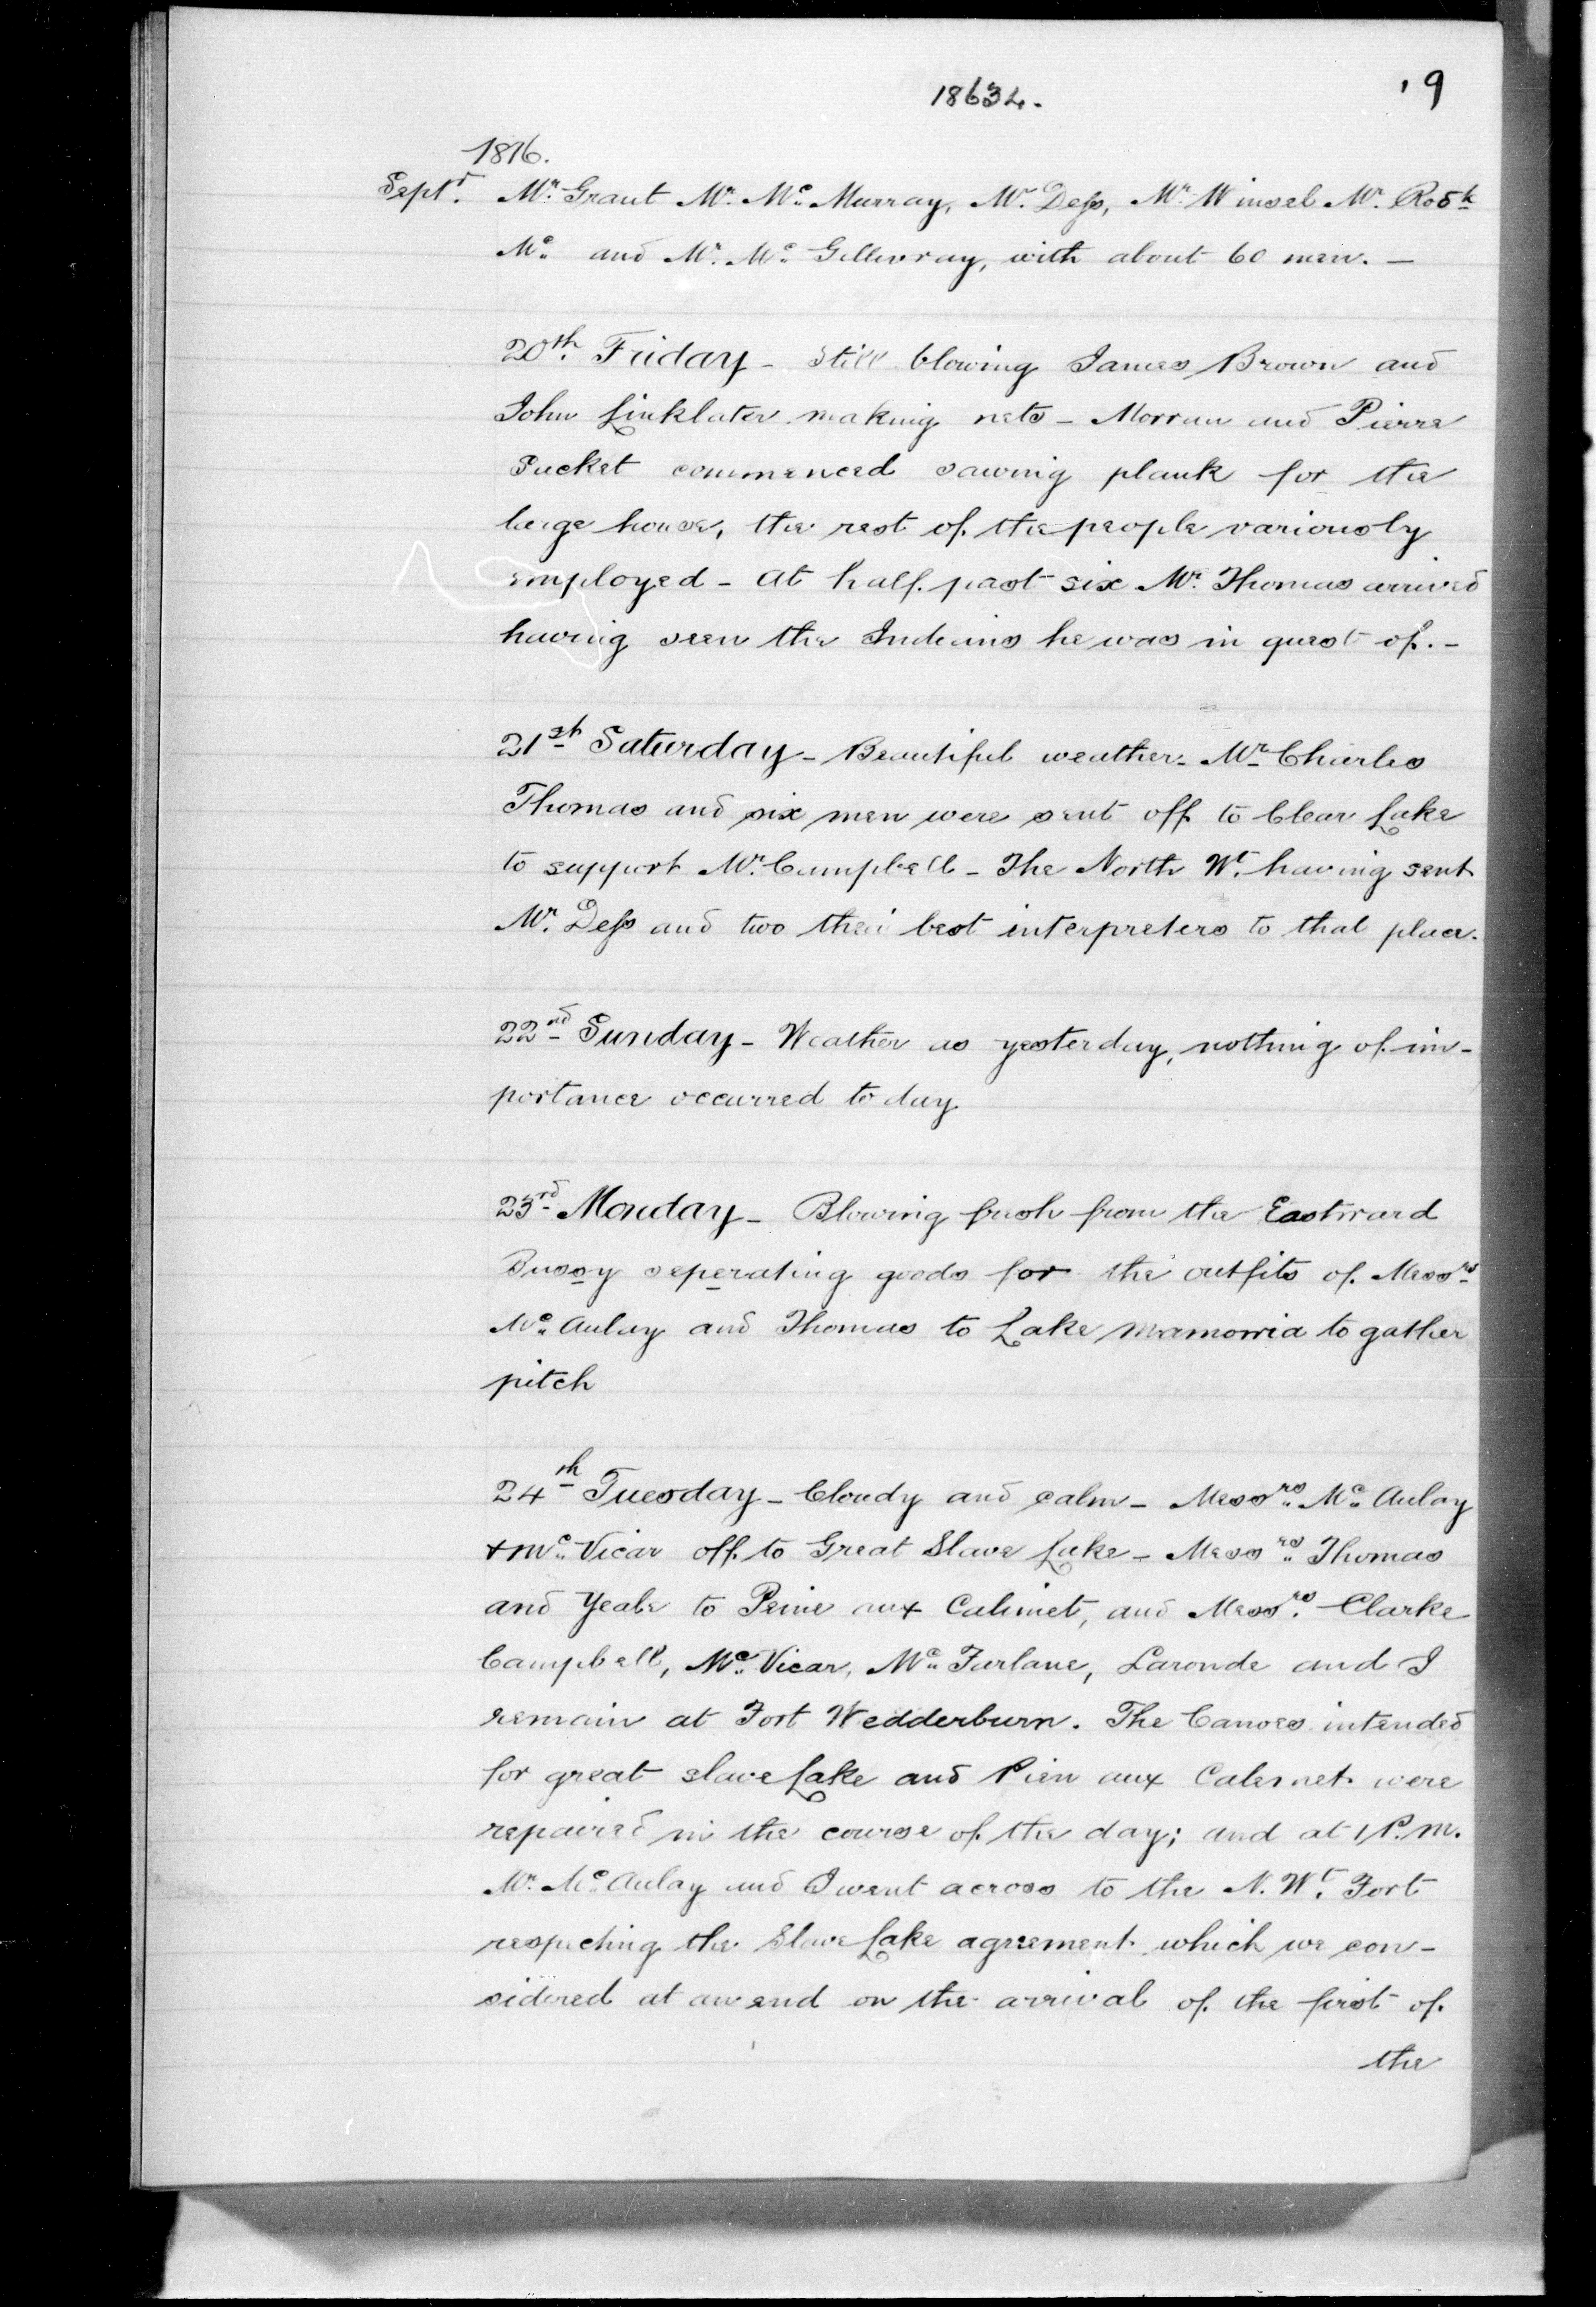 18634.
19
1816.
Septr. Mr. Grant Mr. Mc. Murray, Mr. Dess, Mr. Winsel Mr. Robt
Mc. and Mr. Mc. Gillivray, with about 60 men. —
20th. Friday - Still blowing James Brown and
John Linklater making nets - Morran and Pierre
Pucket commenced sawing plank for the
large house, the rest of the people variously
employed - at half past six Mr. Thomas arrived
having seen the Indians he was in quest of. -
21st Saturday - Beautiful weather - Mr Charles
Thomas and six men were sent off to Clear Lake
to support Mr. Campbell - The North Wt. having sent
Mr. Dess and two their best interpreters to that place.
22nd Sunday - Weather as yesterday, nothing of im-
portance occurred to day
23rd Monday - Blowing fresh from the Eastward
Bussy seperating goods for the outfits of Messrs
Mc. Aulay and Thomas to Lake mamowia to gather
pitch
24th Tuesday - Cloudy and calm - Messrs. Mc. Aulay
& Mc. Vicar off to Great Slave Lake - Messrs. Thomas
and Yeale to Peine aux Calimet, and Messrs. Clarke
Campbell, Mc. Vicar, Mc. Farlane, Laronde and I
remain at Fort Wedderburn. The Canoes intended
for great slave Lake and Pien aux Calemet were
repaired in the course of the day; and at 1 P.M.
Mr. Mc. Aulay and I went across to the N. Wt. Fort
respecting the Slave Lake agreement which we con-
sidered at an end on the arrival of the first of
the